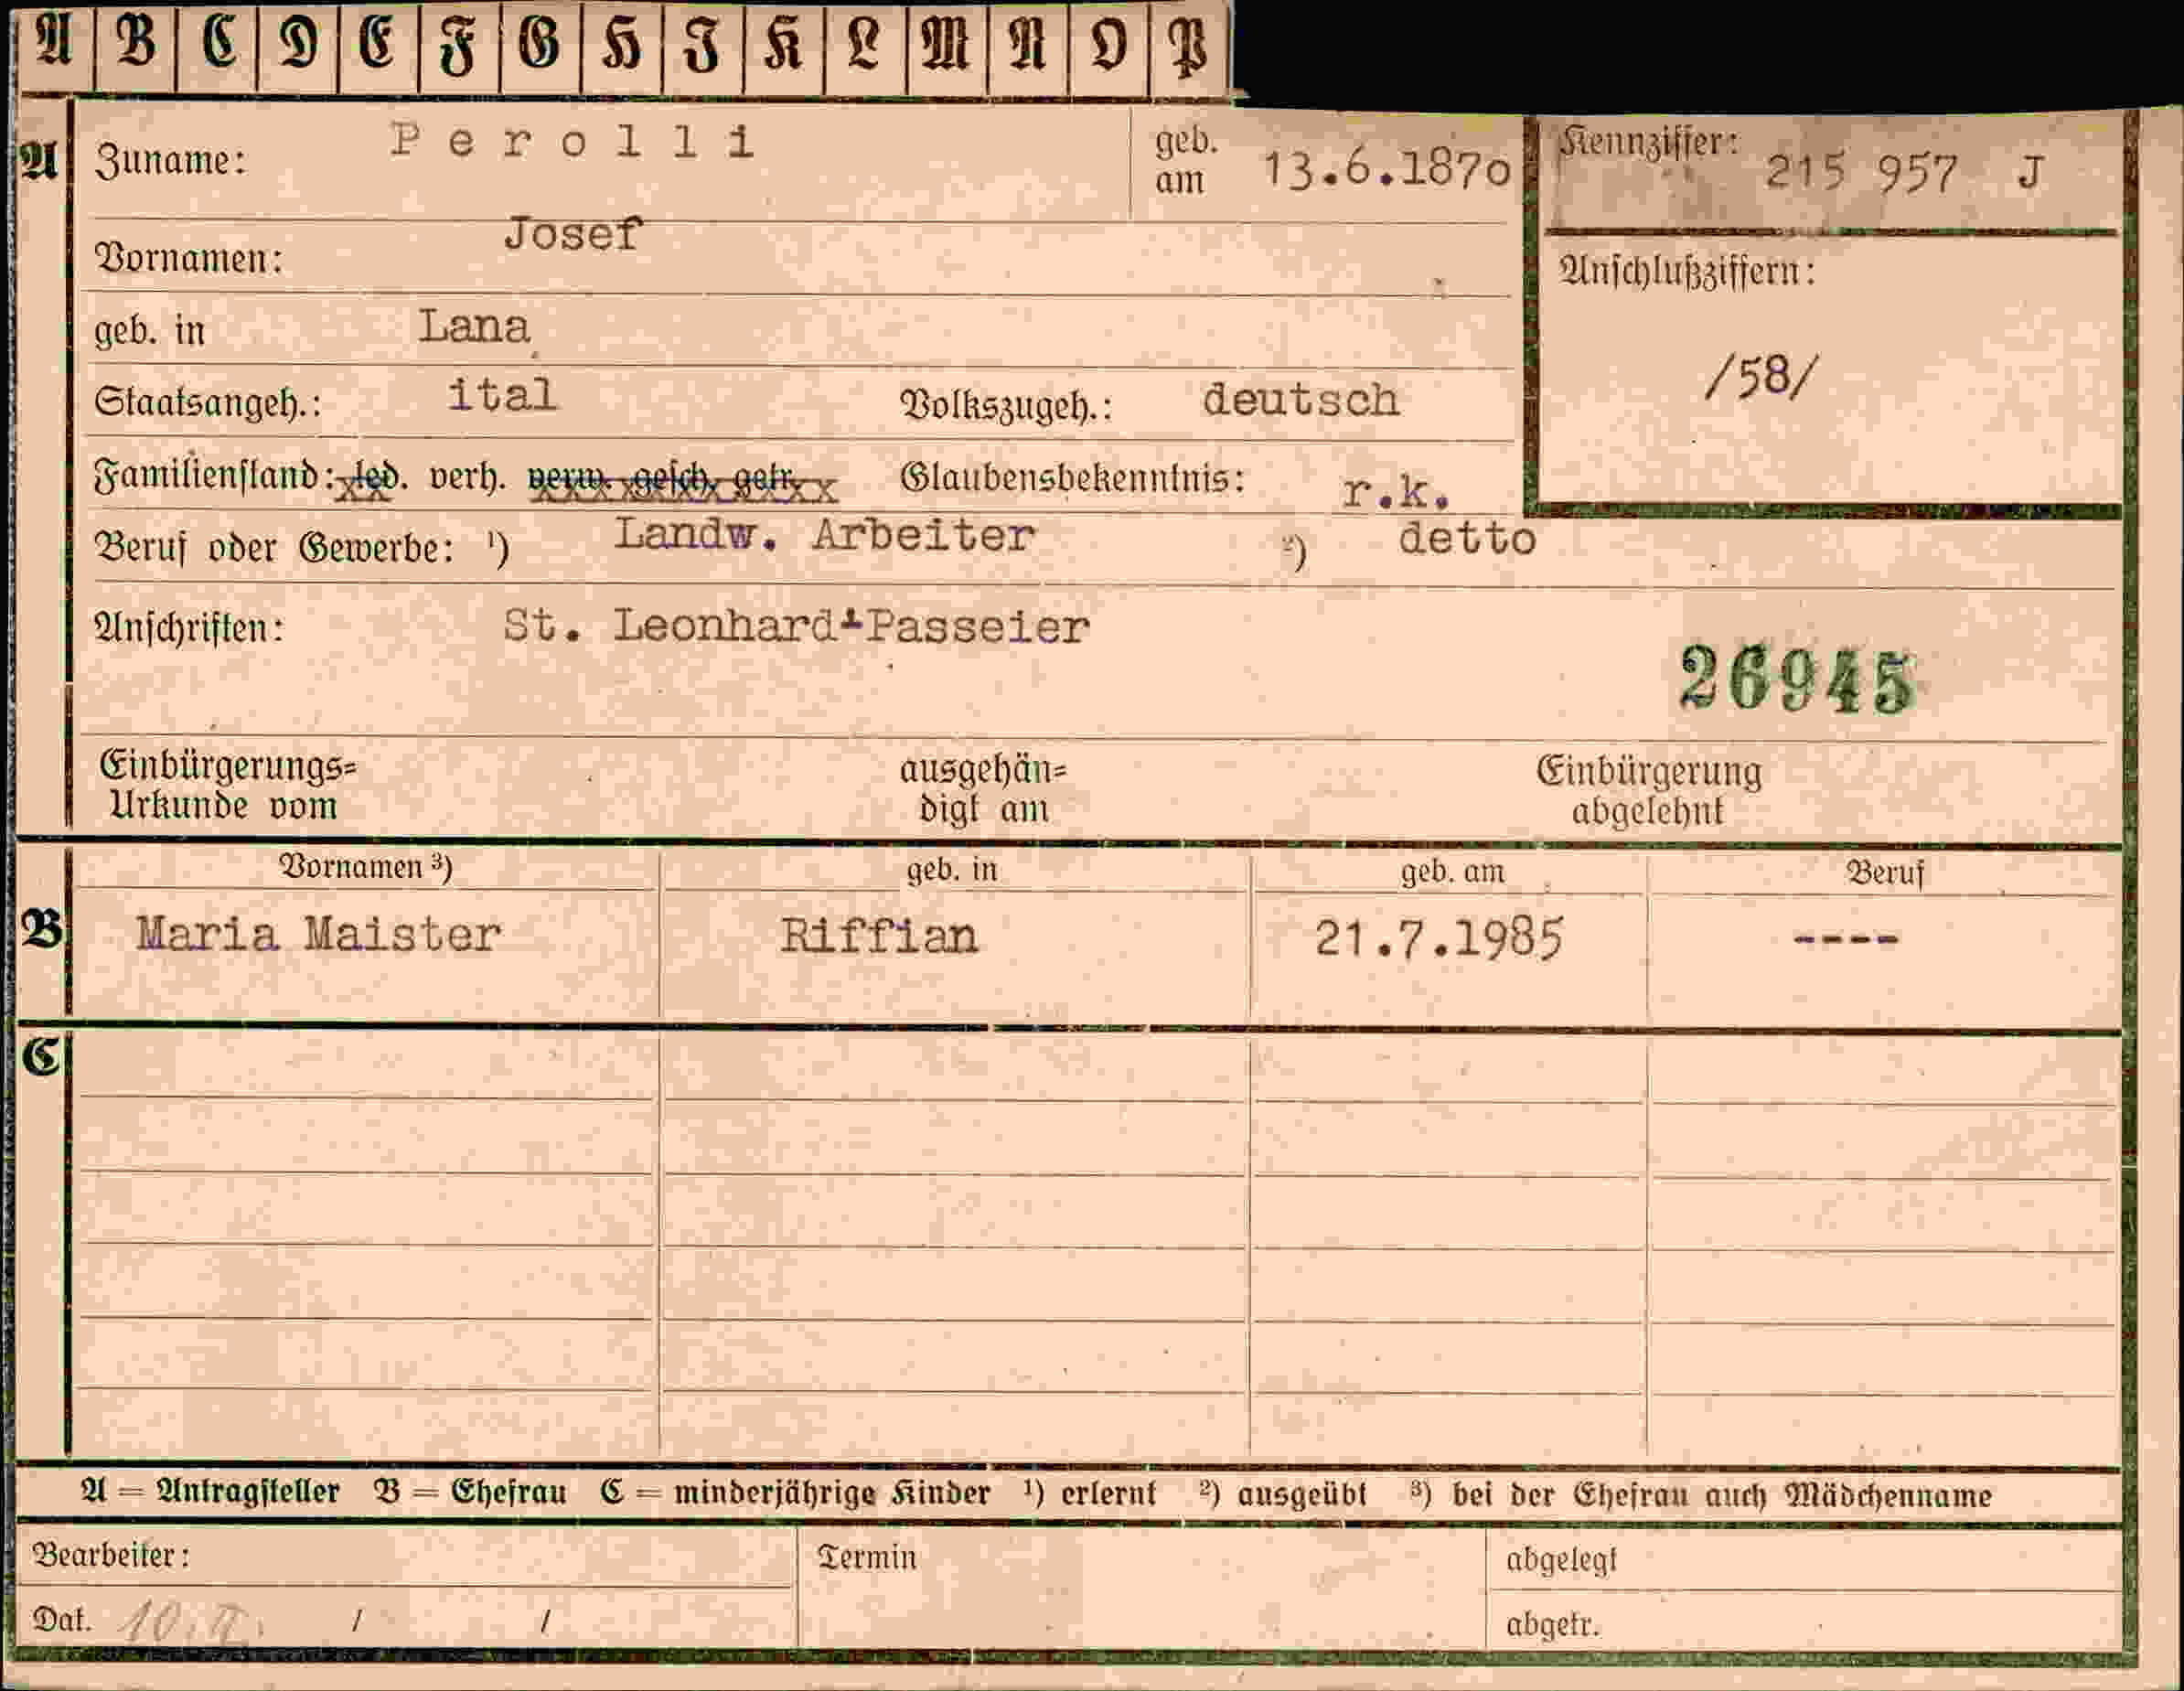 A B C D E F G H I K L M N O P
A Zuname: Perolli geb. am 13.6.1870 Kennziffer: 215 957 J
Vornamen: Josef Anschlußziffern:
geb. in Lana /58/
Staatsangeh.: ital Volkszugeh.: deutsch
Familienstand: led. verh. verw. gesch. getr. Glaubensbekenntnis: r.k.
Beruf oder Gewerbe: ¹) Landw. Arbeiter ²) detto
Anschriften: St. Leonhard-Passeier
26945
Einbürgerungs= ausgehän= Einbürgerung
Urkunde vom digt am abgelehnt
Vornamen ³) geb. in geb. am Beruf
B Maria Maister Riffian 21.7.1985 ----
C
A = Antragsteller B = Ehefrau C = minderjährige Kinder ¹) erlernt ²) ausgeübt ³) bei der Ehefrau auch Mädchenname
Bearbeiter: Termin abgelegt
Dat. 10. / / abgetr.